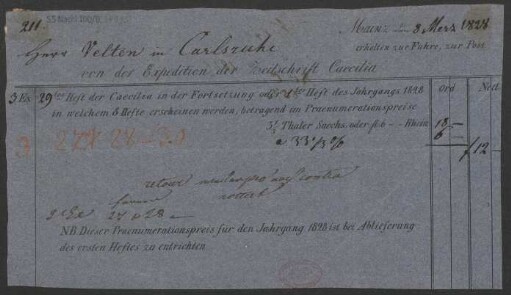 211.
Mainz den 8 März 1828
Herr Velten in Carlsruhe
erhalten zur Fuhre, zur Post
von der Expedition der Zeitschrift Caecilia
Ord Nett
3 Ex 29ster Heft der Caecilia in der Fortsetzung oder 1ster Heft des Jahrgangs 1828
in welchem 8 Hefte erscheinen werden, betragend im Praenumerationspreise
Thaler Saechs. oder fl. 6 - Rhein. 18 -
a 33 1/3 % 6 -
f 12 -
27 28 -
retour
2 Ex 27 28 -
NB. Dieser Praenumerationspreis für den Jahrgang 1828 ist bei Ablieferung
des ersten Heftes zu entrichten